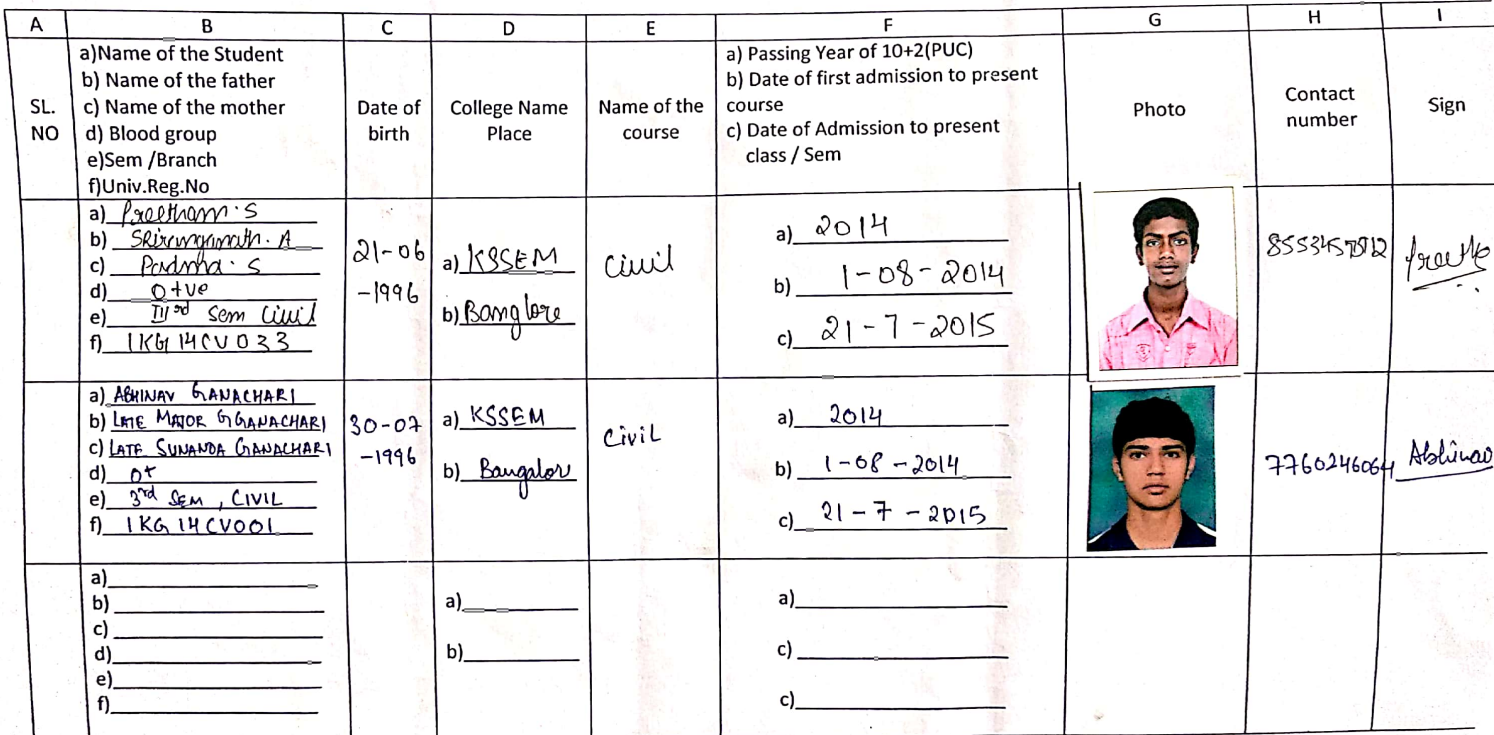 A B C D E F G H I
SL. NO
a)Name of the Student
b) Name of the father
c) Name of the mother
d) Blood group
e)Sem /Branch
f)Univ.Reg.No
Date of birth
College Name Place
Name of the course
a) Passing Year of 10+2(PUC)
b) Date of first admission to present course
c) Date of Admission to present class / Sem
Photo
Contact number
Sign
a) Preetham.S
b) SRiranganath. A
c) Padma.S
d) O+ve
e) IIIrd Sem Civil
f) 1KG14CV033
21-06
-1996
a) KSSEM
b) Banglore
Civil
a) 2014
b) 1-08-2014
c) 21-7-2015
a) ABHINAV GANACHARI
b) LATE MAJOR G GANACHARI
c) LATE SUNANDA GANACHARI
d) O+
e) 3rd SEM, CIVIL
f) 1KG14CV001
30-07
-1996
a) KSSEM
b) Bangalor
Civil
a) 2014
b) 1-08-2014
c) 21-7-2015
7760246064
Abhinav
a)
b)
c)
d)
e)
f)
a)
b)
a)
c)
c)